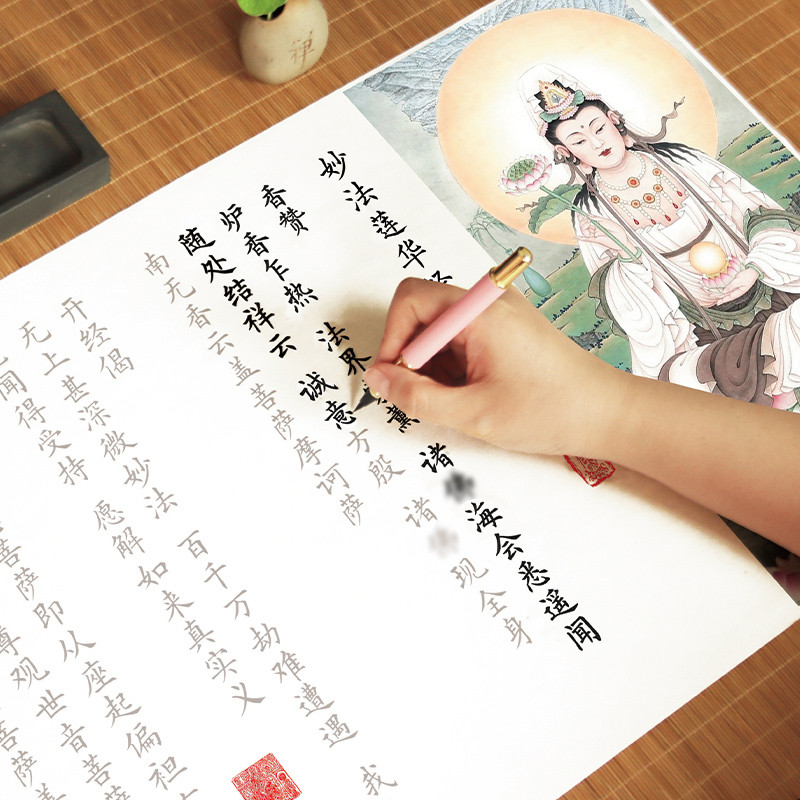 妙法莲华
香赞
炉香乍热 法界薰 诸海会悉遥闻
随处结祥云 诚意方殷 诸现全身
南无香云盖菩萨摩诃萨
开经偈
无上甚深微妙法 百千万劫难遭遇 我
闻得受持 愿解如来真实义
菩萨即从座起偏袒
尊观世音菩
菩萨